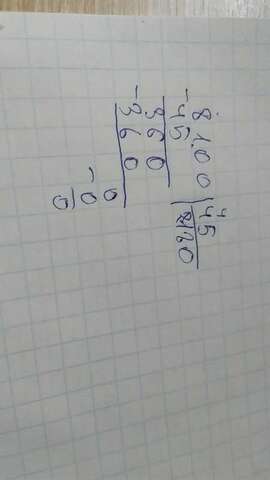 8100 | 45
- 45
360
- 360
0
- 0
0